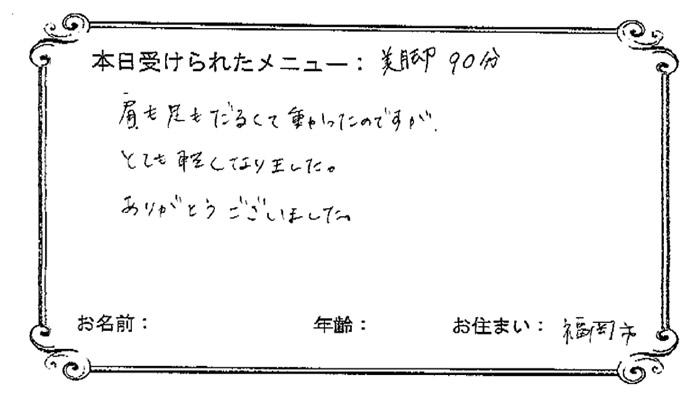 本日受けられたメニュー：美脚 90分
肩も足もだるくて重かったのですが、
とても軽くなりました。
ありがとうございました。
お名前： 年齢： お住まい：福岡市